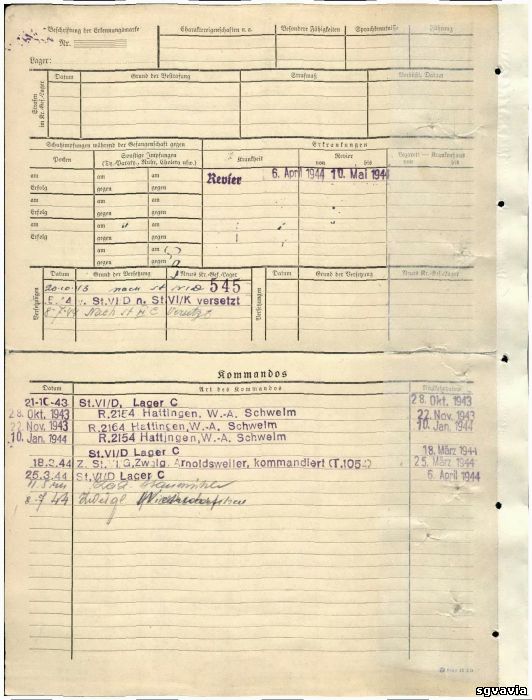 Beschriftung der Erkennungsmarke
Nr.
Lager:
Charaktereigenschaften u. a.
Besondere Fähigkeiten
Sprachkenntnisse
Führung
Strafen im Kr.-Gef.-Lager
Datum
Grund der Bestrafung
Strafmaß
Verbüßt, Datum
Schutzimpfungen während der Gefangenschaft gegen
Erkrankungen
Pocken
Sonstige Impfungen
(Ty. Paraty., Ruhr, Cholera usw.)
Krankheit
Revier
von bis
Lazarett — Krankenhaus
von bis
am am am
Revier 6. April 1944 10. Mai 1944
Erfolg gegen gegen
am am am
Erfolg gegen gegen
am am am
Erfolg gegen gegen
am am am
Erfolg gegen gegen
am am
gegen gegen
Versetzungen
Datum Grund der Versetzung Neues Kr.-Gef.-Lager
Versetzungen
Datum Grund der Versetzung Neues Kr.-Gef.-Lager
20.10.43 nach st VI D 545
v. St.VI/D n. St.VI/K versetzt
8-7-44 Nach st Versetzt
Kommandos
Datum Art des Kommandos
21-10-43 St.VI/D, Lager C 28. Okt. 1943
28. Okt. 1943 R.2154 Hattingen, W.-A. Schwelm 22. Nov. 1943
22. Nov. 1943 R.2164 Hattingen,W.-A. Schwelm 10. Jan. 1944
10. Jan. 1944 R.2154 Hattingen,W.-A. Schwelm
St.VI/D Lager C 18. März 1944
18.3.44 Z. St. VI G,Zwolg. Arnoldsweiler, kommandiert 25. März 1944
25.3.44 St.VI/D Lager C 6. April 1944
8-7-44
sgvavia